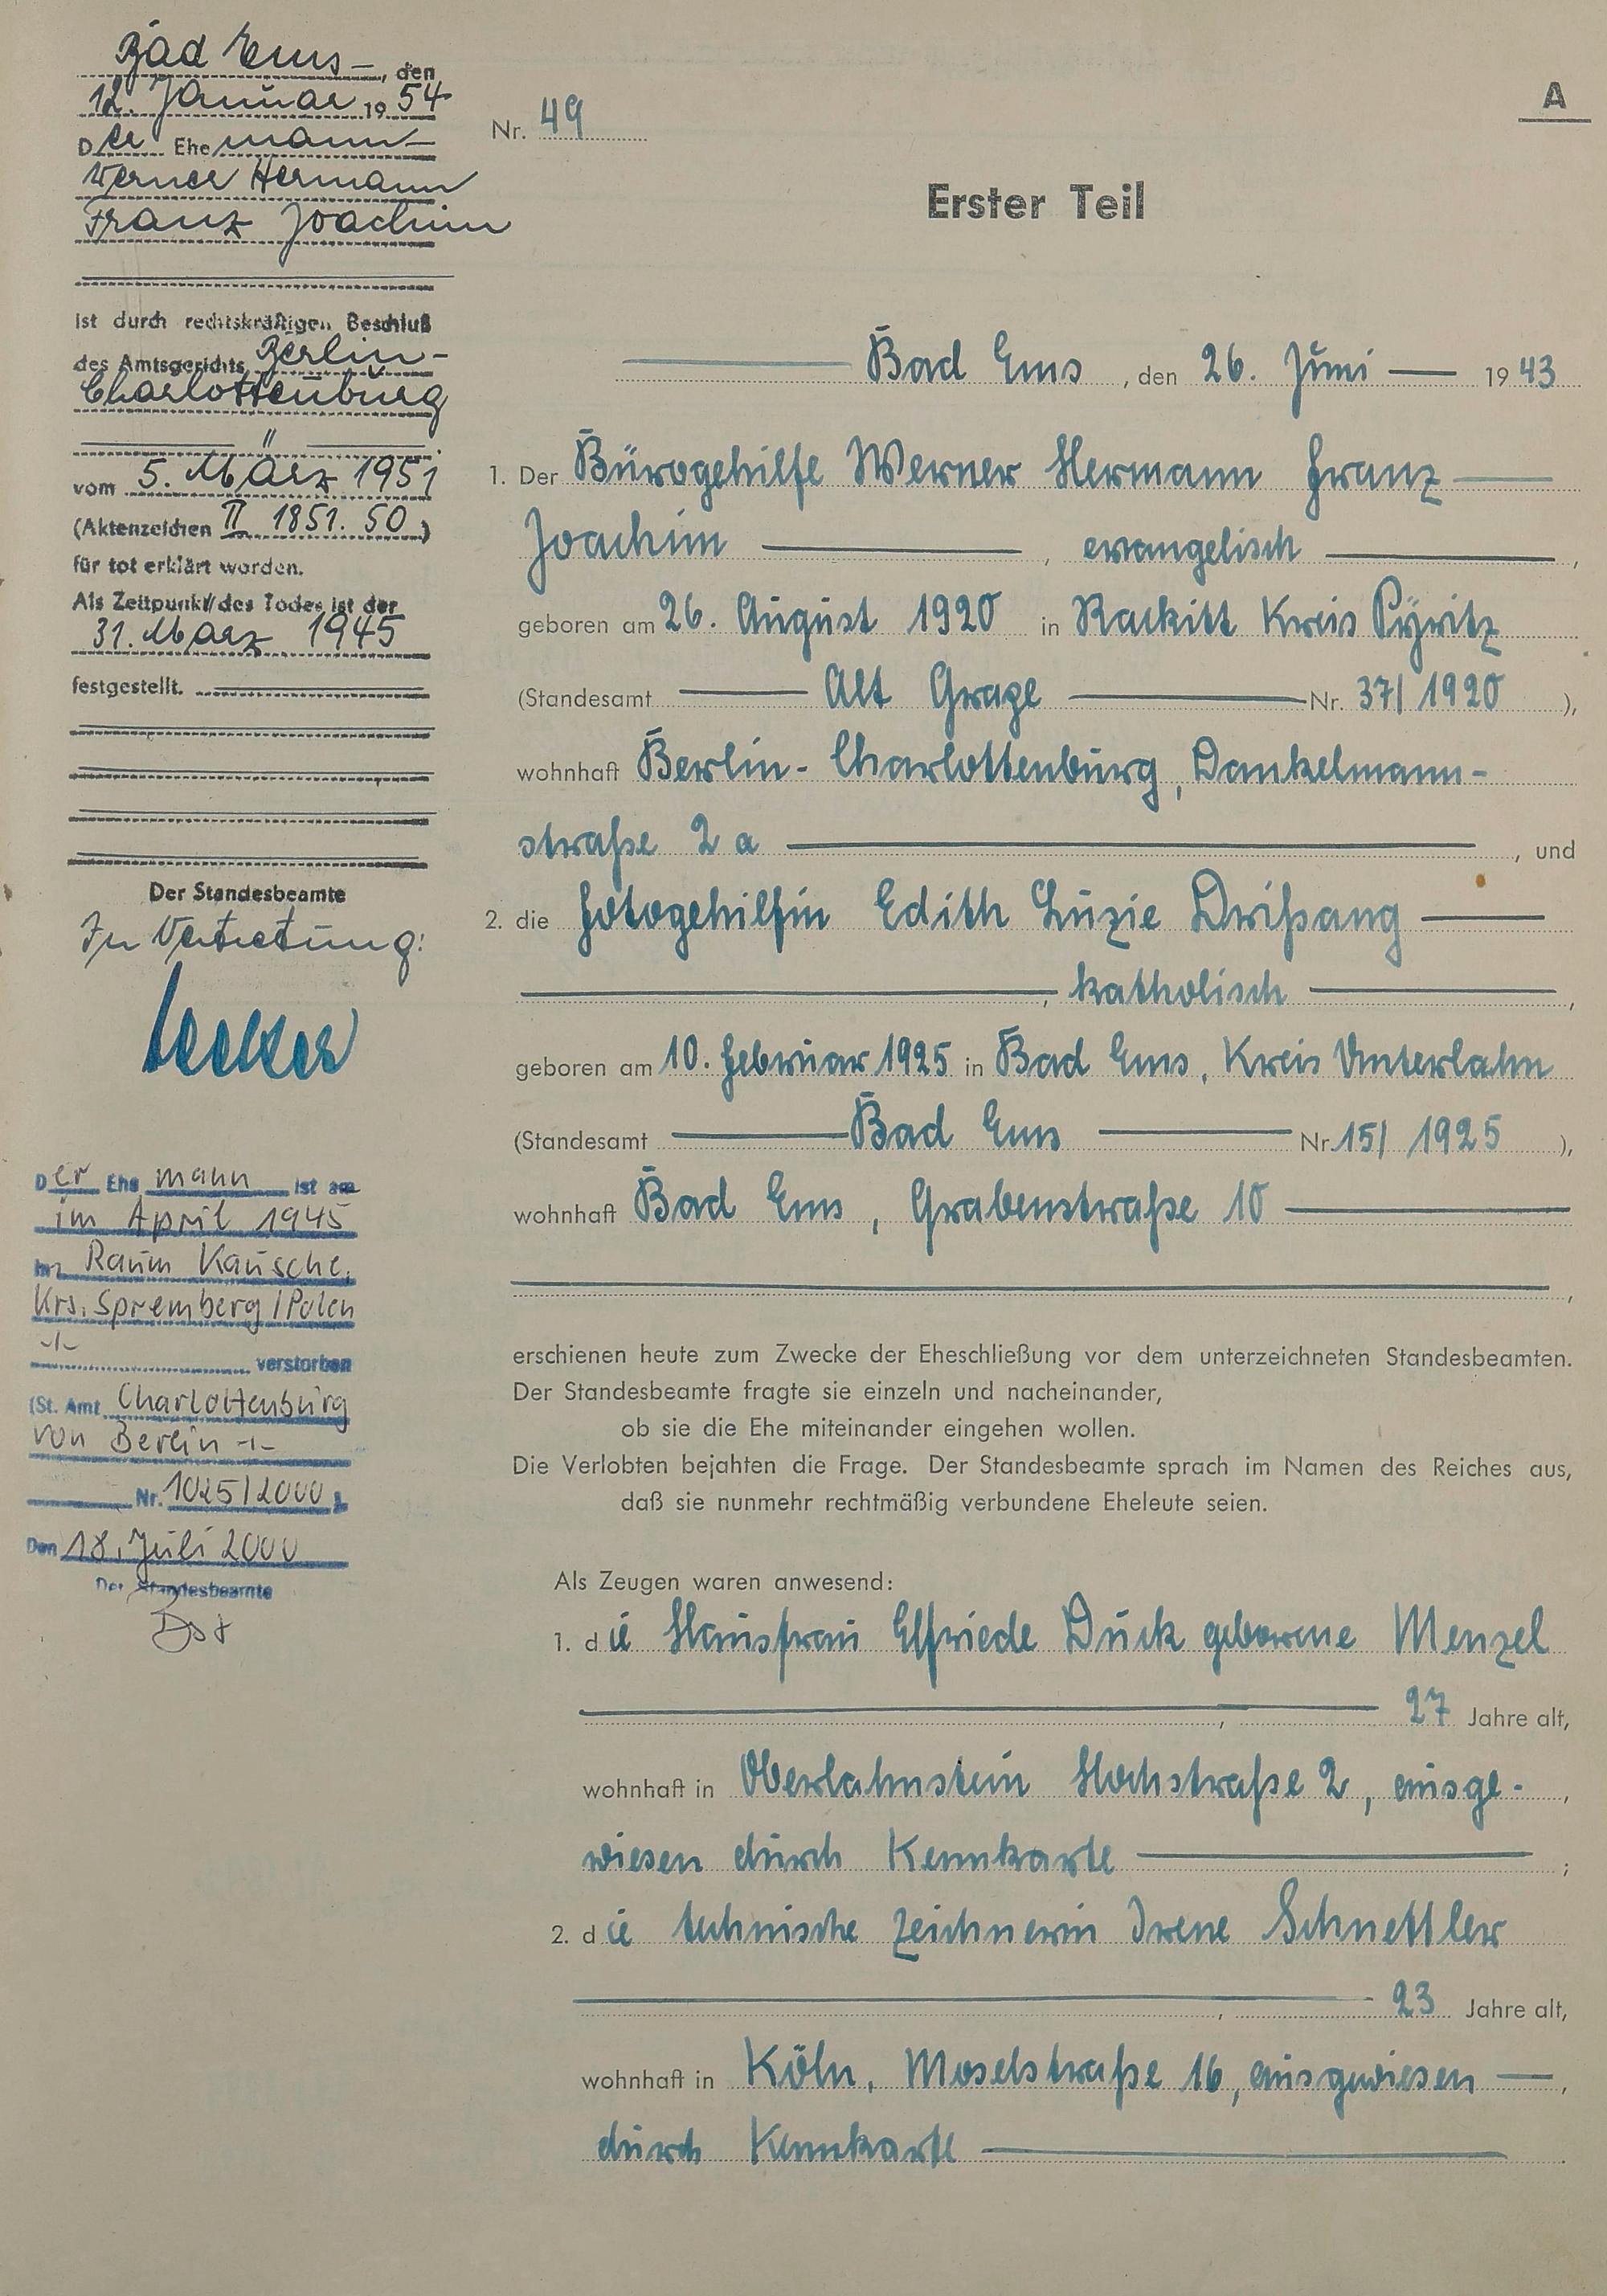 Bad Ems —, den
12. Januar 1954
Der Ehemann —
Werner Hermann
Franz Joachim
ist durch rechtskräftigen Beschluß
des Amtsgerichts Berlin-
Charlottenburg
"
vom 5. März 1951
(Aktenzeichen II 1851. 50)
für tot erklärt worden.
Als Zeitpunkt des Todes ist der
31. März 1945
festgestellt.
Der Standesbeamte
In Vertretung:
Der Ehemann ist am
im April 1945
in Raum Kausche,
Krs. Spremberg / Polen
-/-
verstorben
(St. Amt Charlottenburg
von Berlin -/-
Nr. 1025/2000).
Den 18. Juli 2000
Der Standesbeamte
A
Nr. 49
Erster Teil
Bad Ems, den 26. Juni — 1943
1. Der Bürogehilfe Werner Hermann Franz —
Joachim —, evangelisch —,
geboren am 26. August 1920 in Rackitt Kreis Pyritz
(Standesamt — Alt Grape — Nr. 37/1920),
wohnhaft Berlin-Charlottenburg, Dankelmann-
straße 2a —, und
2. die Fotogehilfin Edith Luzie Drißang —
—, katholisch —,
geboren am 10. Februar 1925 in Bad Ems, Kreis Unterlahn
(Standesamt — Bad Ems — Nr. 15/1925),
wohnhaft Bad Ems, Grabenstraße 10 —
—,
erschienen heute zum Zwecke der Eheschließung vor dem unterzeichneten Standesbeamten.
Der Standesbeamte fragte sie einzeln und nacheinander,
ob sie die Ehe miteinander eingehen wollen.
Die Verlobten bejahten die Frage. Der Standesbeamte sprach im Namen des Reiches aus,
daß sie nunmehr rechtmäßig verbundene Eheleute seien.
Als Zeugen waren anwesend:
1. die Hausfrau Elfriede Duck geborene Menzel
—, — 27 Jahre alt,
wohnhaft in Oberlahnstein Hochstraße 2, ausge-,
wiesen durch Kennkarte —;
2. die technische Zeichnerin Irene Schnettler
—, — 23 Jahre alt,
wohnhaft in Köln, Moselstraße 16, ausgewiesen —,
durch Kennkarte —.